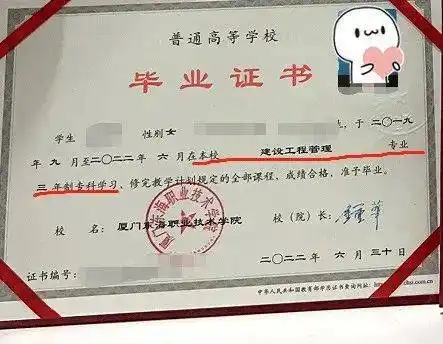 普通高等学校
毕业证书
学生 性别 女 于 二〇一九
年 九 月至二〇二二年 六 月在本校 建设工程管理 专业
三 年制专科学习,修完教学计划规定的全部课程,成绩合格,准予毕业。
校 名: 厦门东海职业技术学院 校(院)长:
厦门东海职业技术学院
二〇二二 年 六 月 三十 日
证书编号:
中华人民共和国教育部学历证书查询网址: